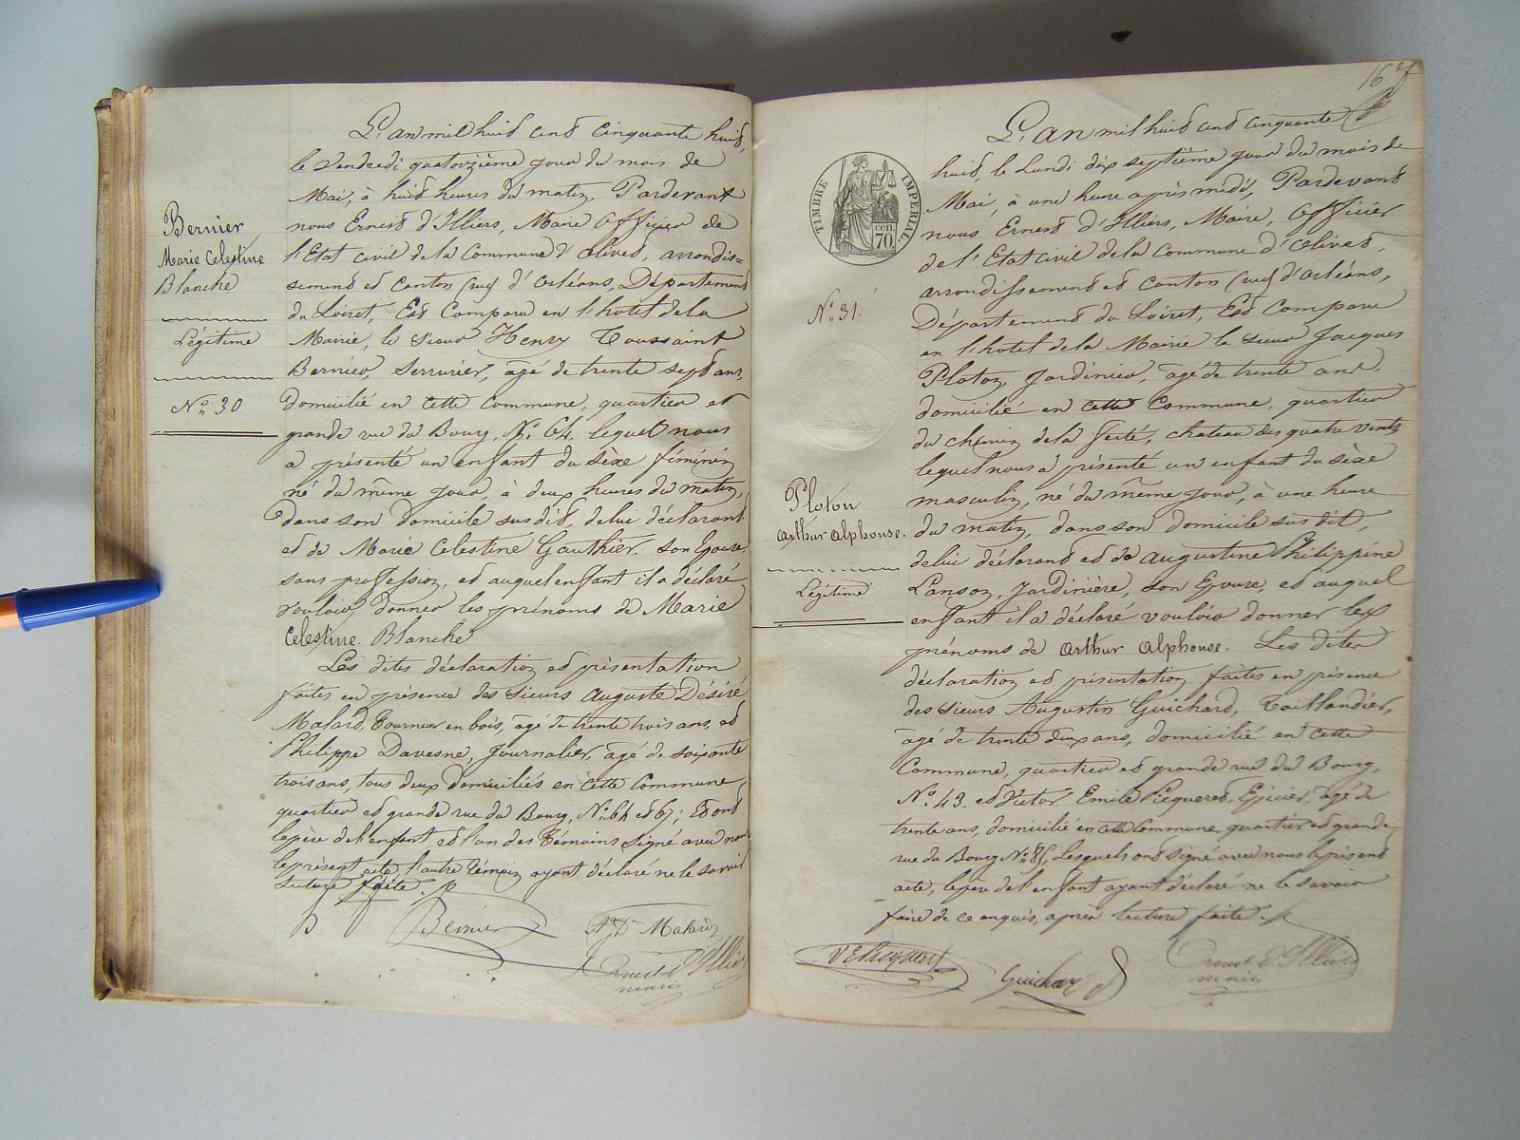 L'an mil huit cent cinquante huit,
le Vendredi quatorzième jour du mois de
Mai, à huit heures du matin, Pardevant
nous Ernest d'Illiers, Maire Officier de
l'Etat civil de la Commune d'Olivet, arrondis=
sement et Canton Sud d'Orléans, Département
du Loiret, Est Comparu en l'hotel de la
Mairie, le sieur Henry Toussaint
Bernier, Serrurier, agé de trente sept ans,
domicilié en cette Commune, quartier et
grande rue du Bourg, N° 64, lequel nous
a présenté un enfant du sèxe féminin
né du même jour, à deux heures du matin,
dans son domicile sus dit, de lui déclarant
et de Marie Celestine Gauthier, son Epouse,
sans profession, et auquel enfant il a déclaré
vouloir donner les prénoms de Marie
Celestine Blanche
Les dites déclaration et présentation
faites en présence des Sieurs Auguste Désiré
Malard, Tourneur en bois, agé de trente trois ans, et
Philippe Davesne, Journalier, agé de soixante
trois ans, tous deux domiciliés en cette Commune,
quartier et grande rue du Bourg, N° 64 et 67; Et ont
le père de l'enfant et l'un des Témoins signé avec nous
le présent acte, l'autre témoin ayant déclaré ne le savoir
Lecture faite.
Bernier
A D Malard
Ernest d'Illiers
maire
Bernier
Marie Celestine
Blanche
Légitime
N° 30
16
L'an mil huit cent cinquante
huit, le Lundi dix septième jour du mois de
Mai, à une heure après midi, Pardevant
nous Ernest d'Illiers, Maire, Officier
de l'Etat civil de la Commune d'Olivet,
arrondissement et Canton Sud d'Orléans,
Département du Loiret, Est Comparu
en l'hotel de la Mairie le sieur Jacques
Ploton, Jardinier, agé de trente ans,
domicilié en cette Commune, quartier
du chemin de la Ferté, chateau des quatre vents
lequel nous a présenté un enfant du sèxe
masculin, né du même jour, à une heure
du matin, dans son domicile sus dit,
de lui déclarant et de Augustine Philippine
Lanson, Jardinière, son Epouse, et auquel
enfant il a déclaré vouloir donner les
prénoms de Arthur Alphonse. Les dites
déclaration et présentation faites en présence
des Sieurs Augustin Guichard, Taillandier,
agé de trente deux ans, domicilié en cette
Commune, quartier et grande rue du Bourg,
N° 43. et Victor Emile Picqueret, Epicier, agé de
trente ans, domicilié en cette Commune quartier et grande
rue du Bourg N° 85, Lesquels ont signé avec nous le présent
acte, le père de l'enfant ayant déclaré ne le savoir
faire de ce enquis, après lecture faite.
Guichard
Ernest d'Illiers
maire
TIMBRE IMPERIAL
CEN.
70.
N° 31.
Ploton
Arthur Alphonse.
Légitime